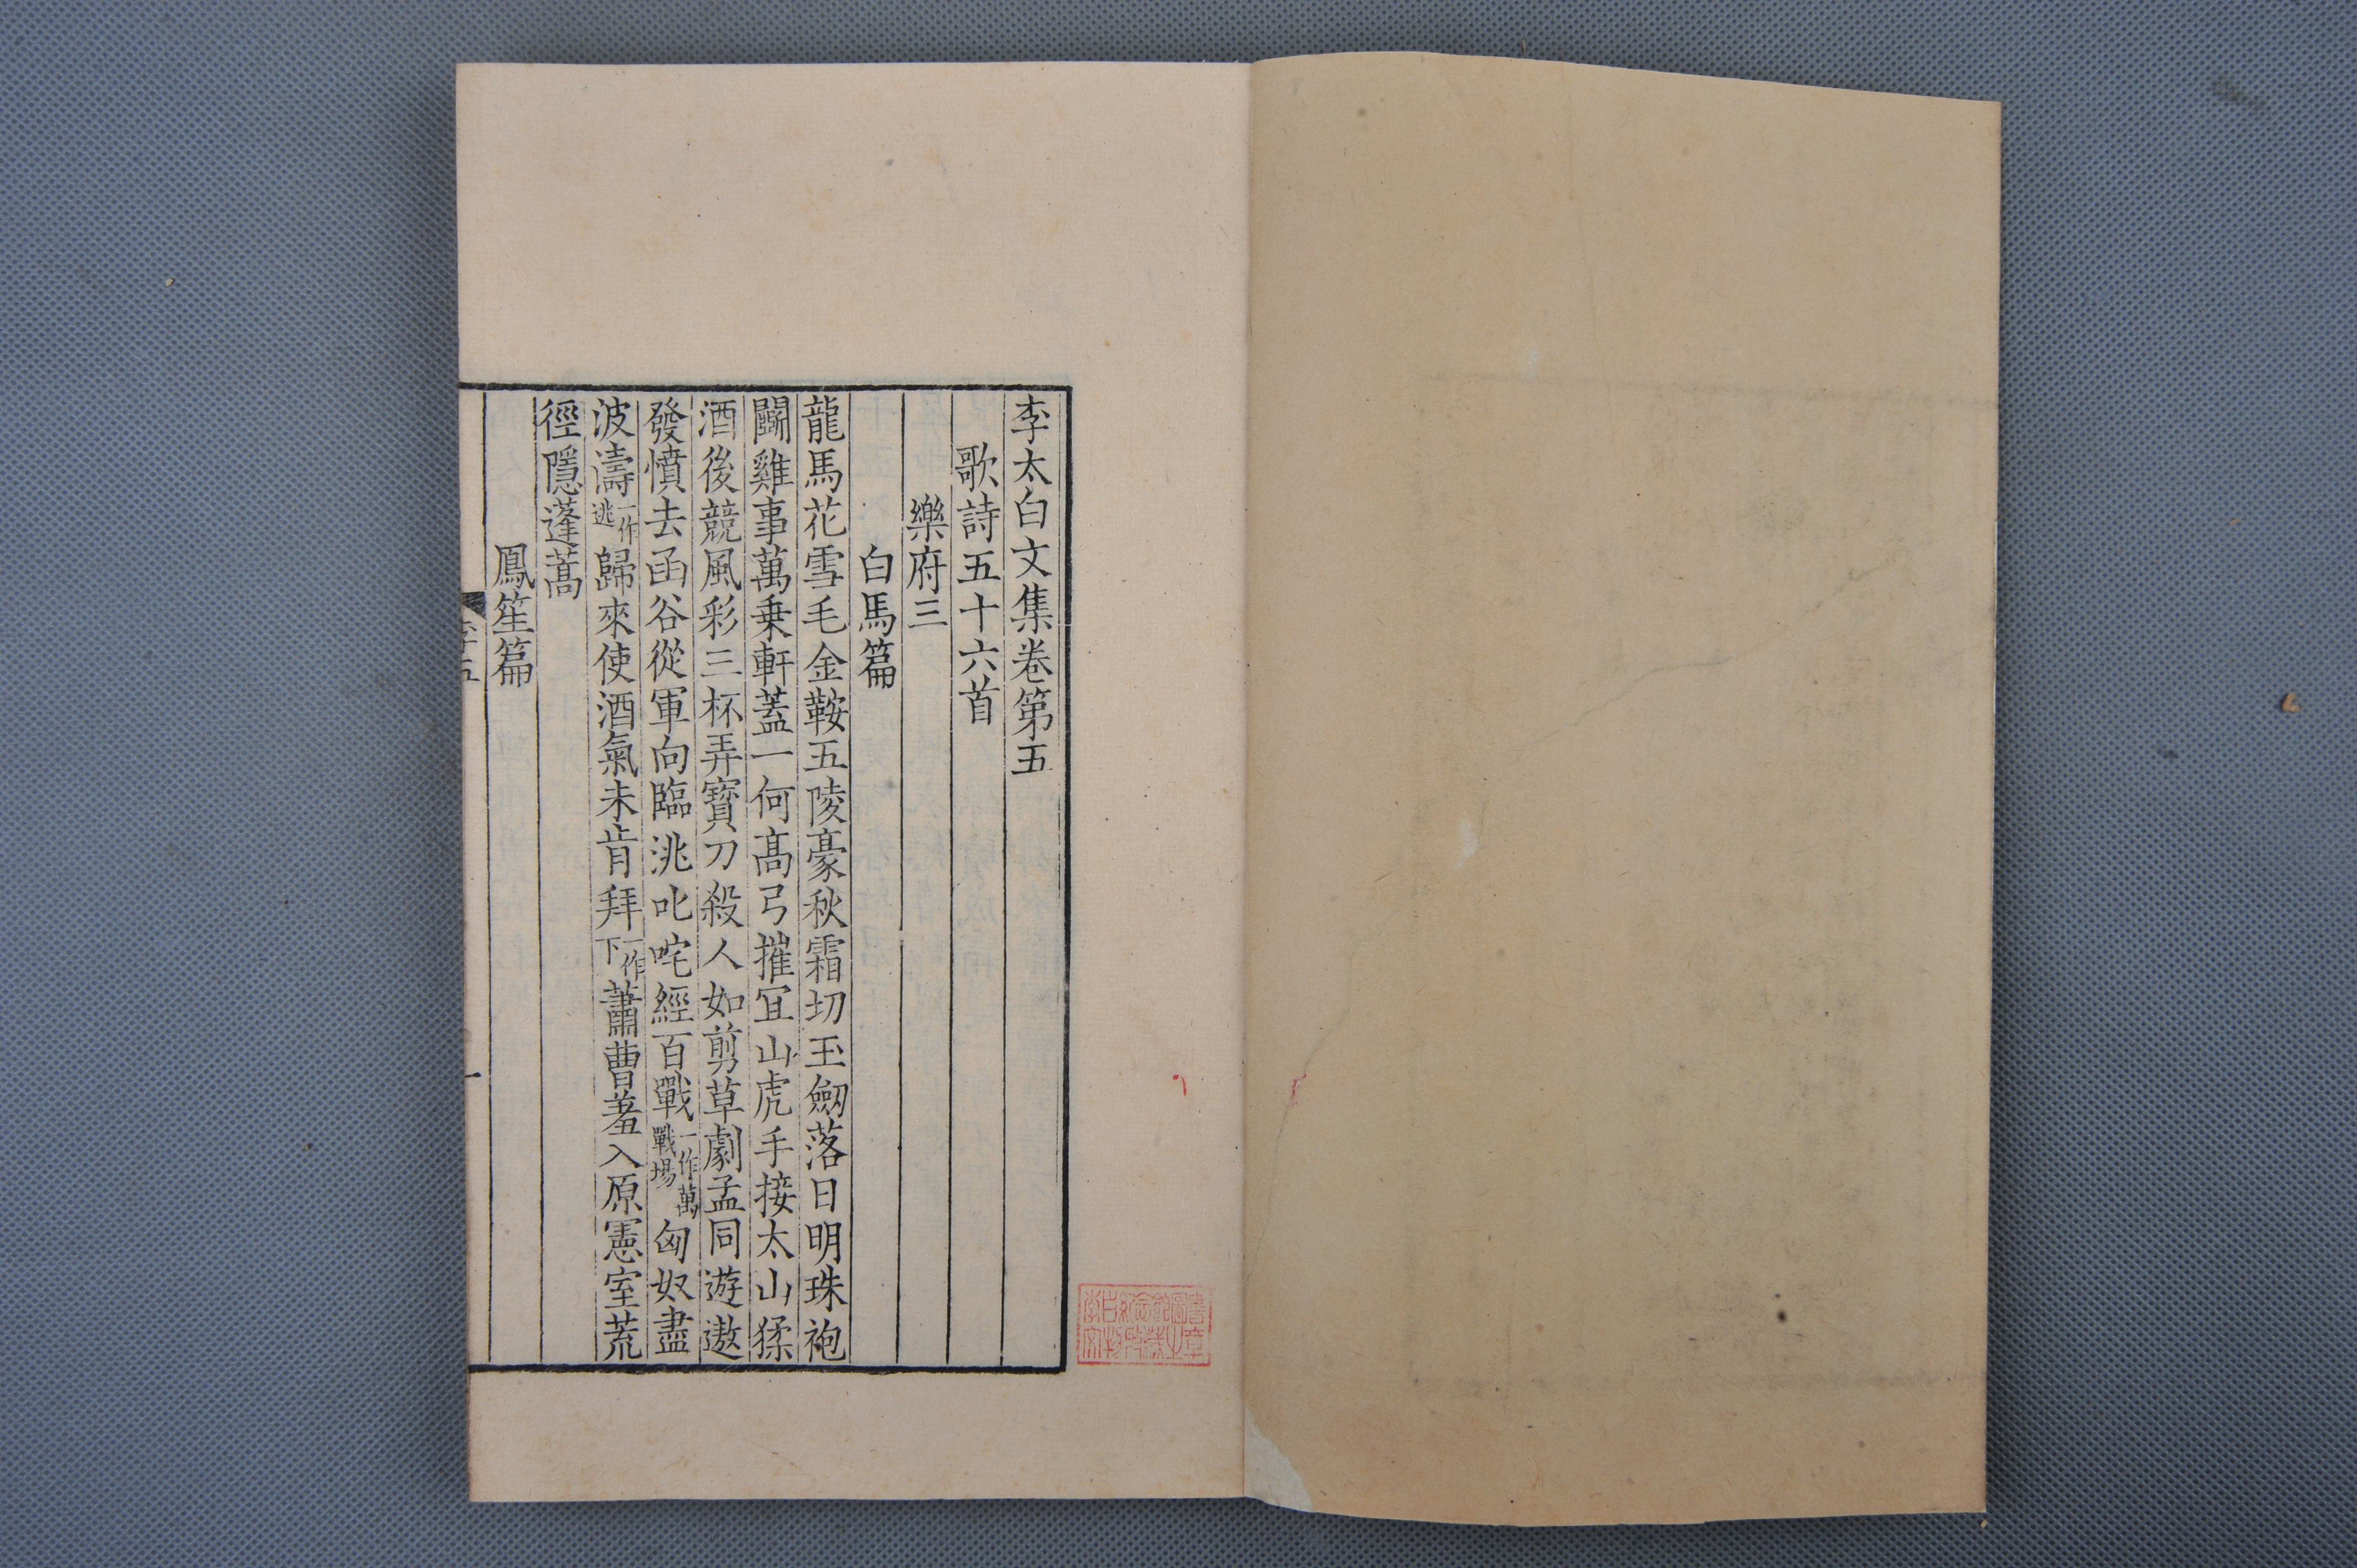 李太白文集卷第五
歌詩五十六首
樂府三
白馬篇
龍馬花雪毛金鞍五陵豪秋霜切玉劒落日明珠袍
鬬雞事萬乗軒蓋一何髙弓摧宜山虎手接太山猱
酒後競風彩三杯弄寳刀殺人如剪草劇孟同遊遨
發憤去函谷從軍向臨洮叱咤經百戰一作萬戰場匈奴盡
波濤一作逃歸來使酒氣未肯拜一作下蕭曹羞入原憲室荒
徑隱蓬蒿
鳳笙篇
李五
一